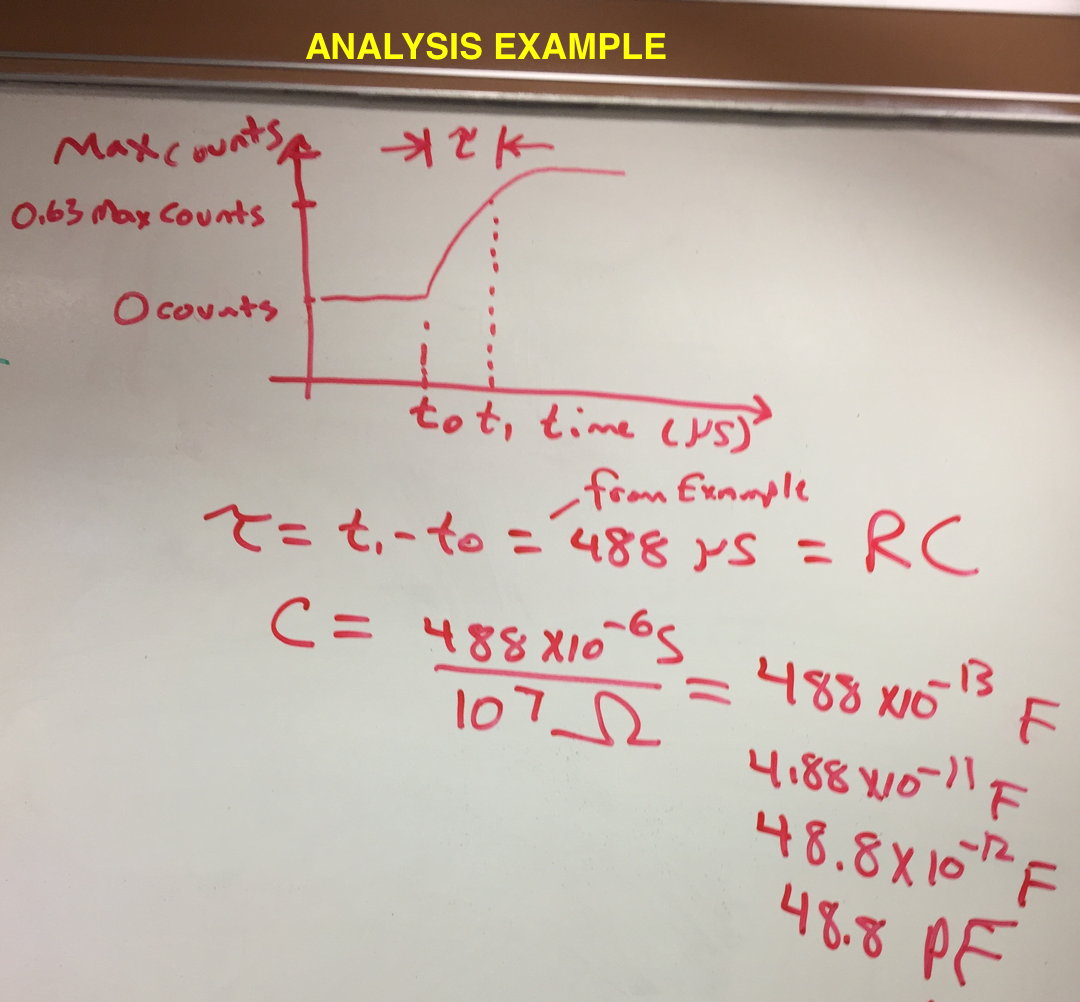 ANALYSIS EXAMPLE
Max counts
τ
0.63 Max Counts
0 counts
t0 t1 time (μs)
from Example
τ = t1 - t0 = 488 μs = RC
C = 488 x10^-6 s / 10^7 Ω = 488 x10^-13 F
4.88 x10^-11 F
48.8 x10^-12 F
48.8 pF